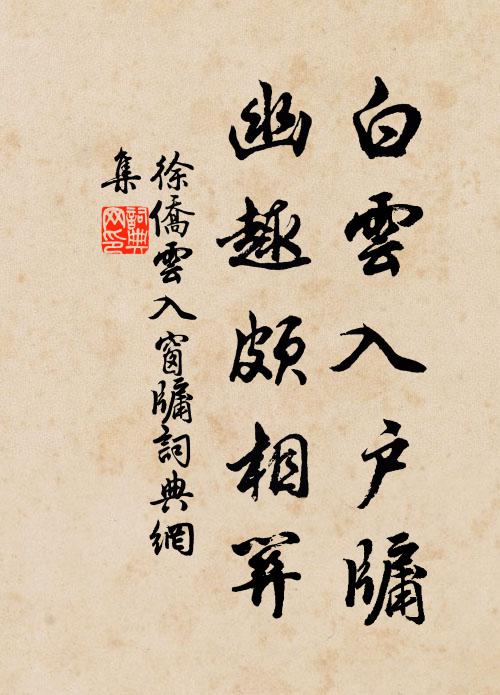 白雲入戶牖
幽趣頗相
徐僑雲入窗牖詞典網
集
詞典
网印